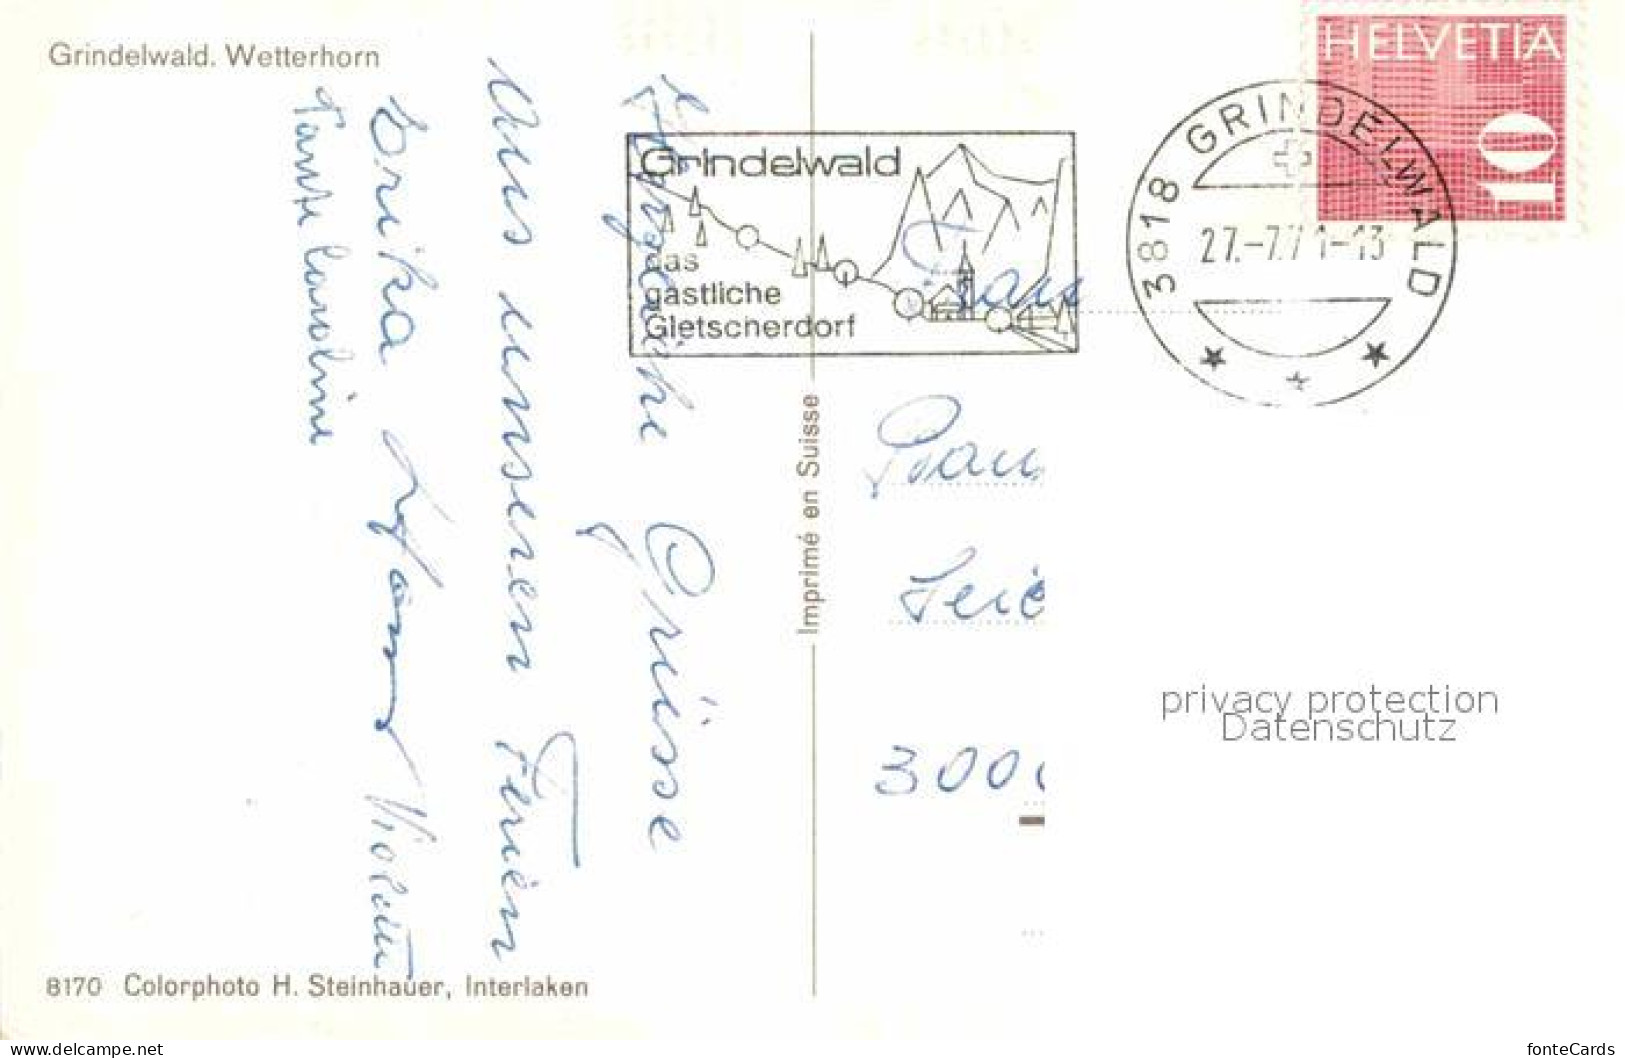 Grindelwald. Wetterhorn
HELVETIA
10
3818 GRINDELWALD
27.-7.71-13
Grindelwald
das
gastliche
Gletscherdorf
Herzliche Grüsse
Aus unseren Ferien
Erika
Violette
Tante Caroline
Frau
3000
Imprimé en Suisse
privacy protection
Datenschutz
8170 Colorphoto H. Steinhauer, Interlaken
www.delcampe.net
fonteCards